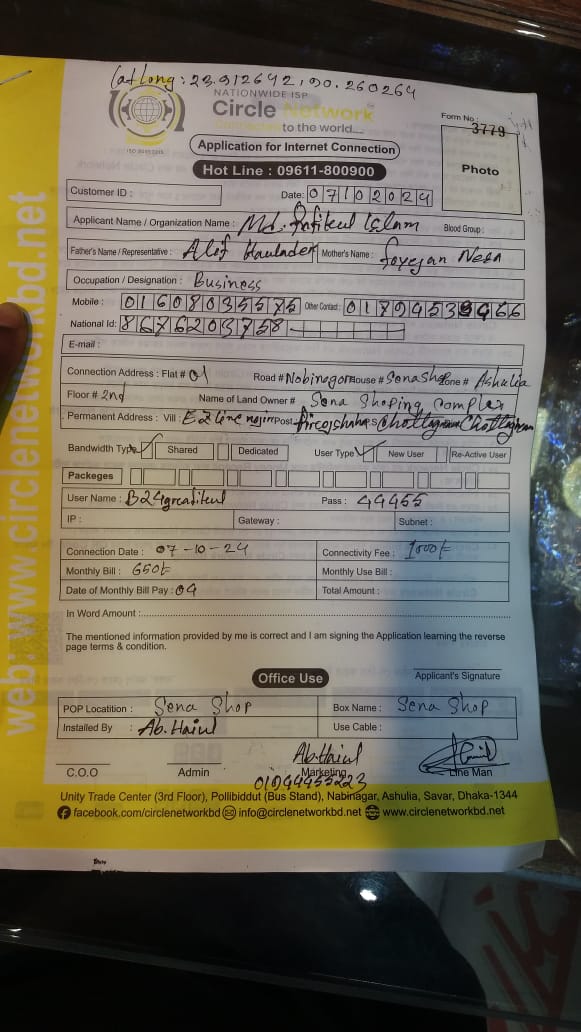 Lat Long : 23.912642, 90.260264
NATIONWIDE ISP
Circle Network
Connected to the world....
ISO 9001:2015
Form No : 3779
Application for Internet Connection
Hot Line : 09611-800900
Photo
Customer ID :
Date: 07102024
Applicant Name / Organization Name : Md. Rafikul Islam Blood Group :
Father's Name / Representative : Alif Haulader Mother's Name : Nesa
Occupation / Designation : Business
Mobile : 01608035575 Other Contact :
National Id: 8676203758
E-mail :
Connection Address : Flat # 01 Road # Nobinogor House # Sena Shop Zone # Ashulia
Floor # 2nd Name of Land Owner # Sena Shoping Complex
Permanent Address : Vill : Post P.S Chottagram Chottagram
Bandwidth Type Shared Dedicated User Type New User Re-Active User
Packeges
User Name : Pass : 44455
IP : Gateway : Subnet :
Connection Date : 07-10-24 Connectivity Fee : 1000/-
Monthly Bill : 650/- Monthly Use Bill :
Date of Monthly Bill Pay : 09 Total Amount :
In Word Amount :
The mentioned information provided by me is correct and I am signing the Application learning the reverse
page terms & condition.
Office Use
Applicant's Signature
POP Locatition : Sena Shop Box Name : Sena Shop
Installed By : Ab. Haiul Use Cable :
Ab. Haiul
C.O.O Admin Marketing Line Man
01944455223
Unity Trade Center (3rd Floor), Pollibiddut (Bus Stand), Nabinagar, Ashulia, Savar, Dhaka-1344
facebook.com/circlenetworkbd info@circlenetworkbd.net www.circlenetworkbd.net
web: www.circlenetworkbd.net